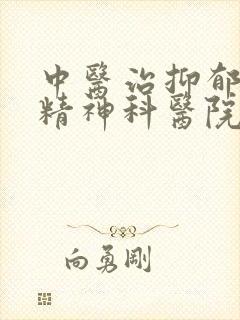 中醫治抑郁
精神科醫院
向勇剛